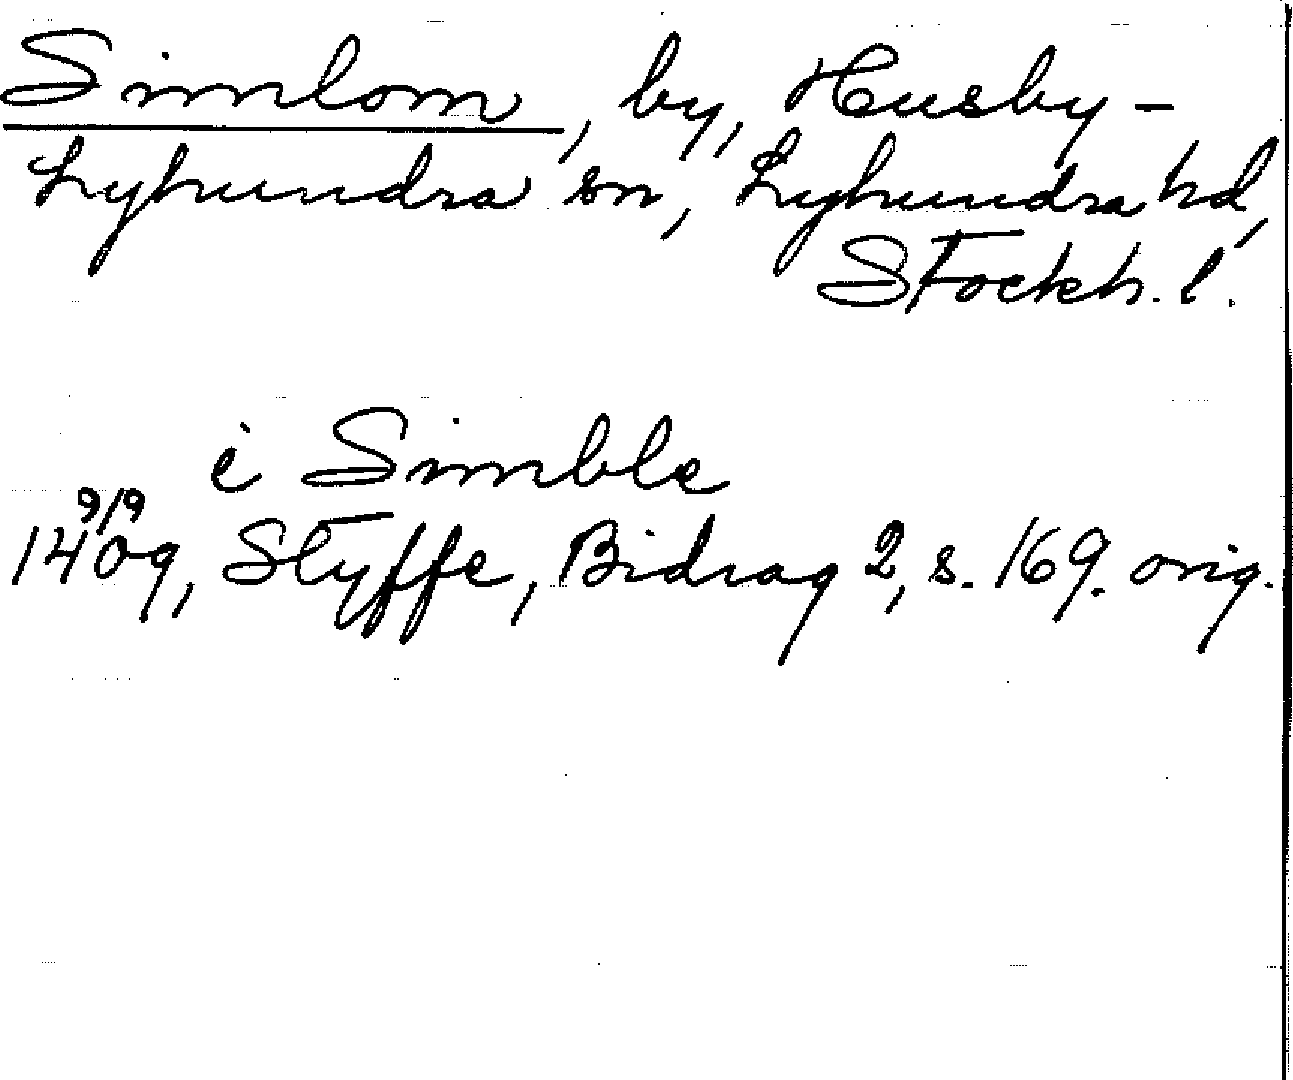 Simlom, by, Husby-
Lyhundra sn, Lyhundra hd,
Stockh. l.
i Simble
9/9
1409, Styffe, Bidrag 2, s. 169. orig.